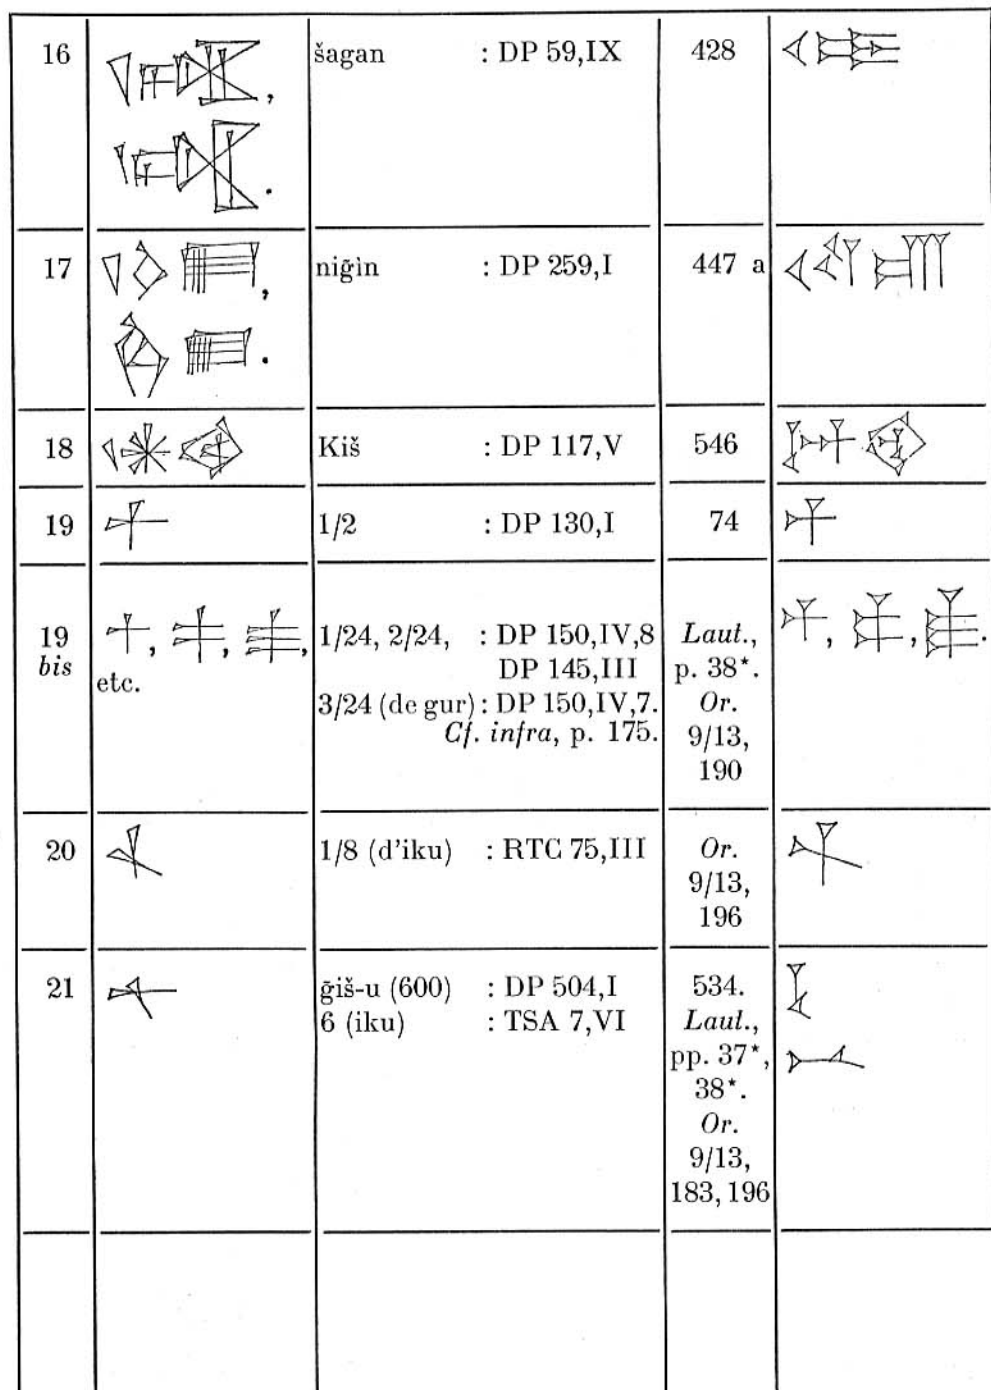 16 šagan : DP 59,IX 428
, .
17 niḡin : DP 259,I 447 a
, .
18 Kiš : DP 117,V 546
19 1/2 : DP 130,I 74
19 bis , , , etc. 1/24, 2/24, : DP 150,IV,8 Laut., , , .
DP 145,III p. 38*.
3/24 (de gur) : DP 150,IV,7. Or.
Cf. infra, p. 175. 9/13,
190
20 1/8 (d'iku) : RTC 75,III Or.
9/13,
196
21 ḡiš-u (600) : DP 504,I 534.
6 (iku) : TSA 7,VI Laut.,
pp. 37*,
38*.
Or.
9/13,
183, 196